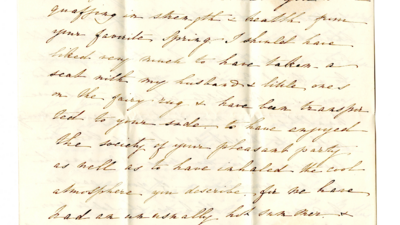 quaffing in strength & health from
your favorite Spring. I should have
liked very much to have taken a
seat with my husband & little ones
on the fairy rug & have been transpor
ted to your side to have enjoyed
the society of your pleasant party
as well as to have inhaled the cool
atmosphere you describe, for we have
had an unusually hot summer &